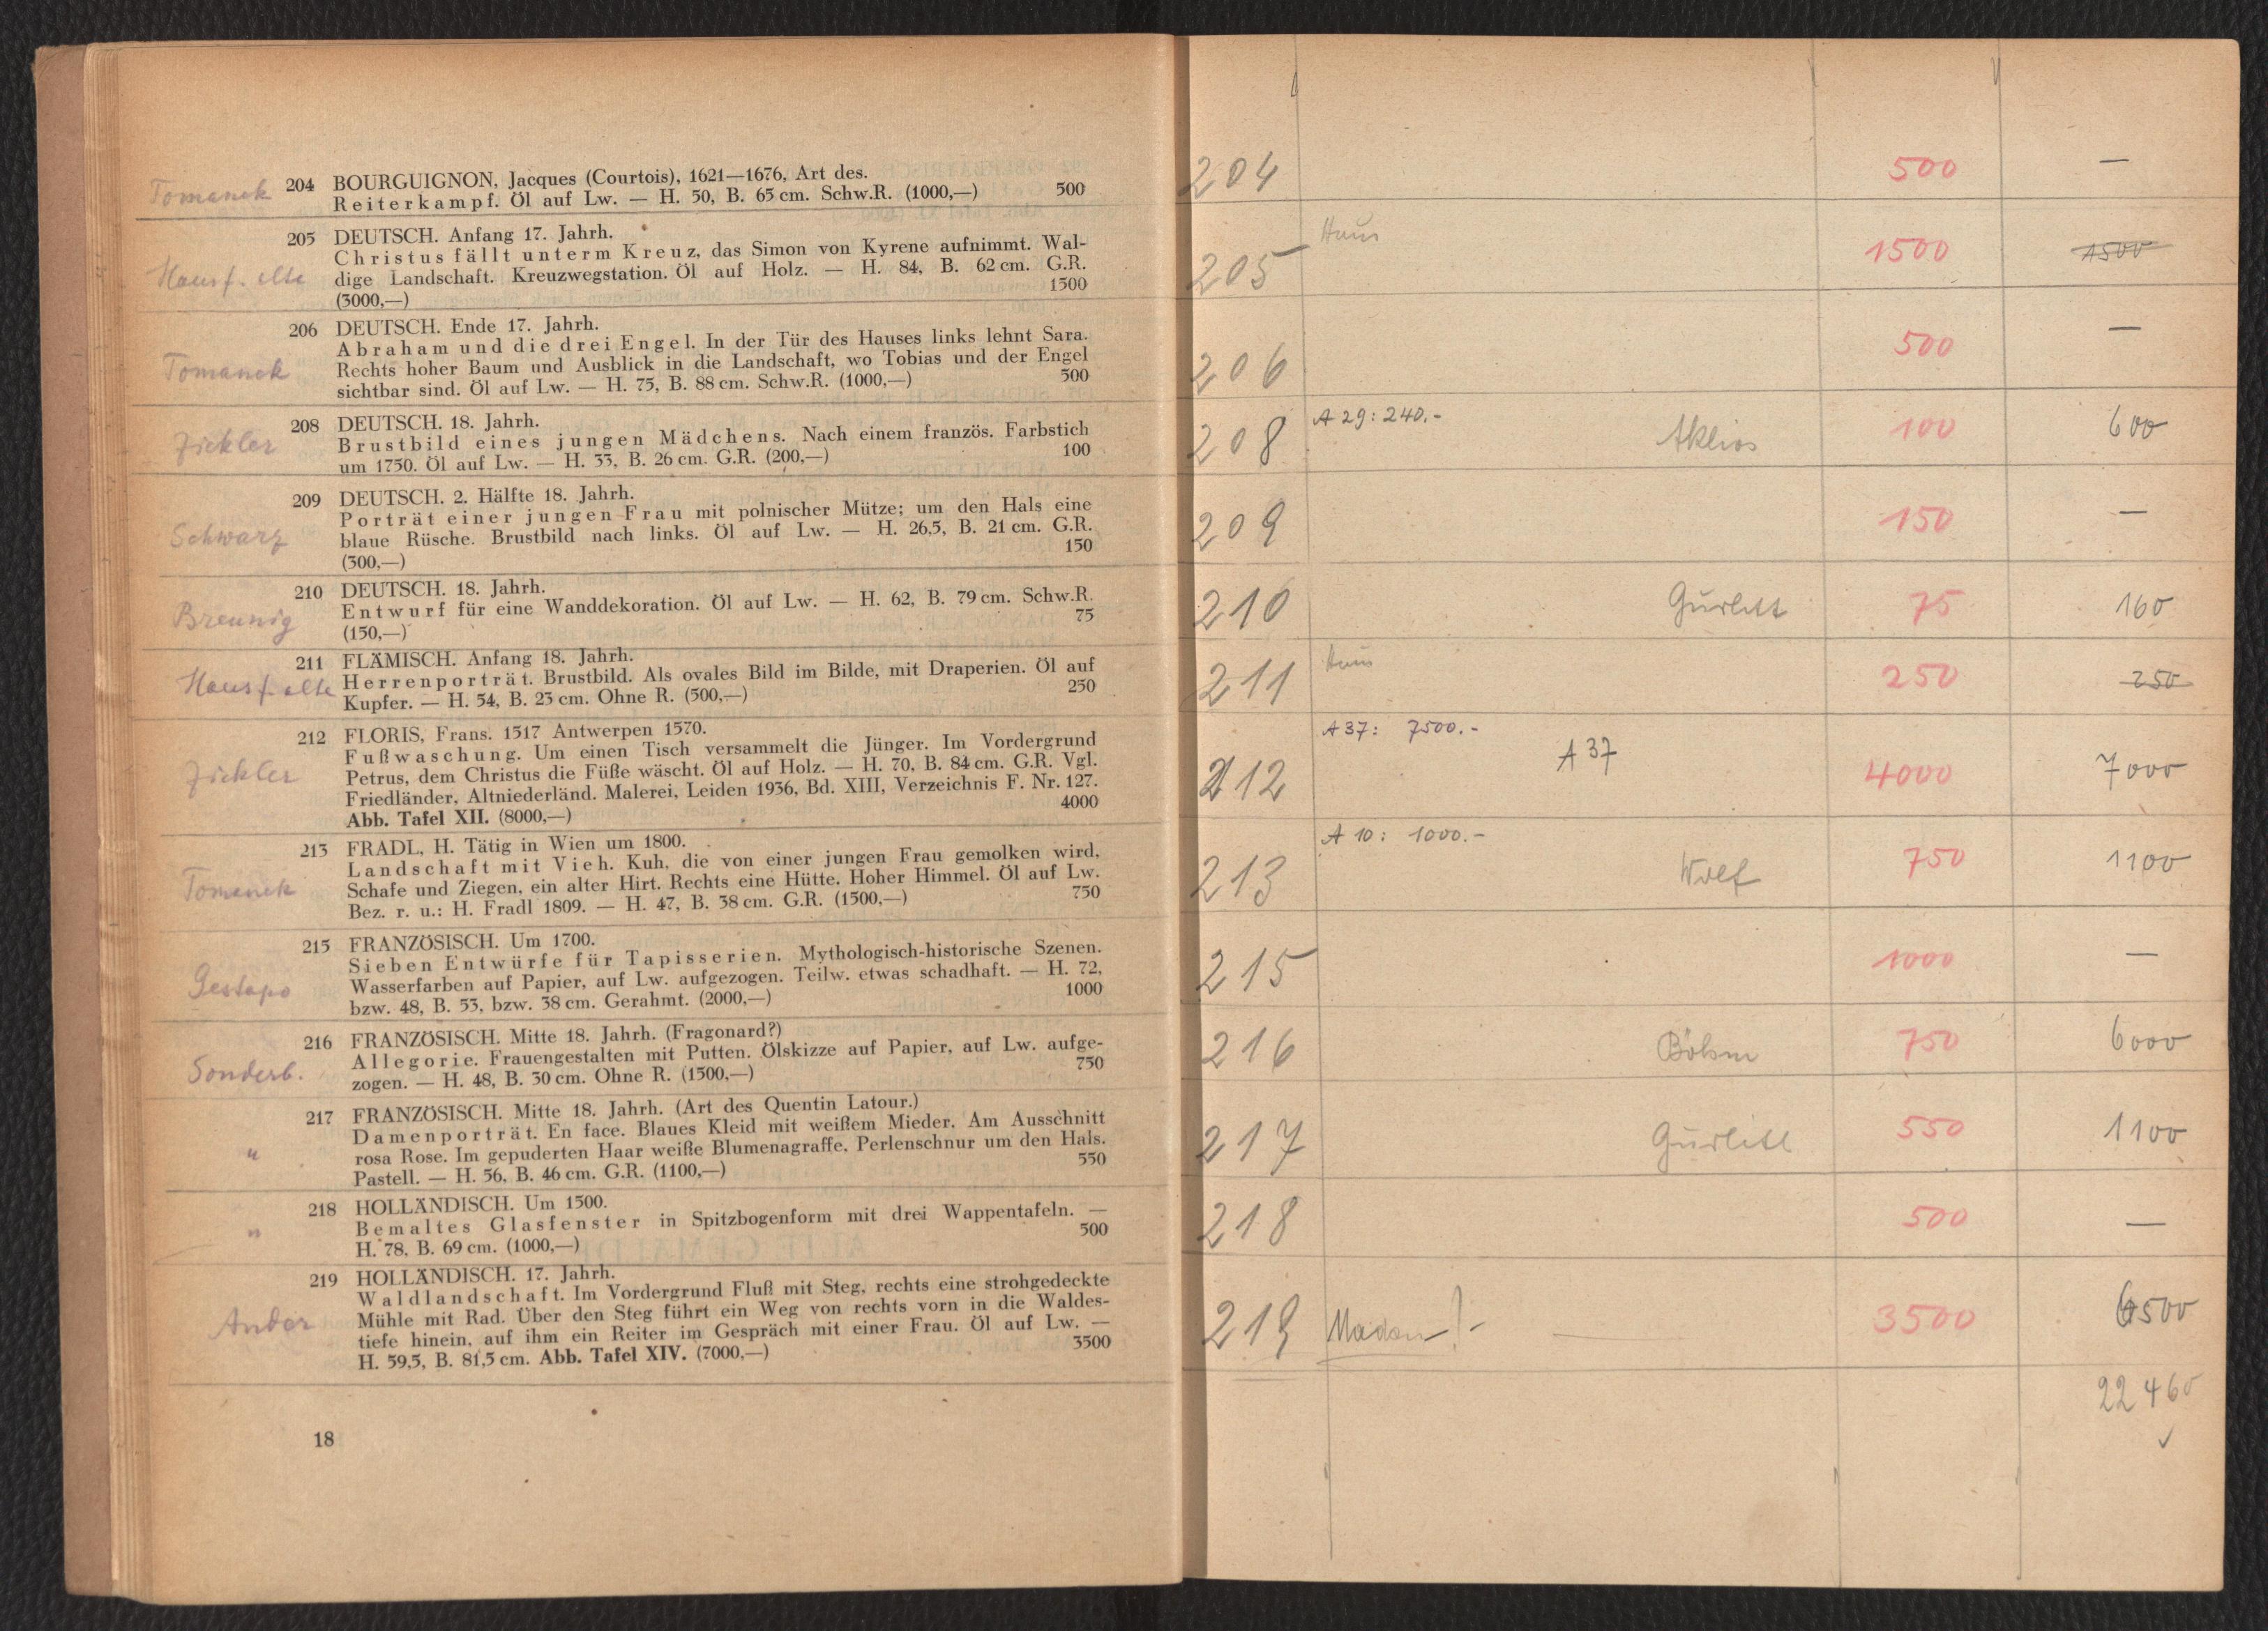 Tomanek
204 BOURGUIGNON, Jacques (Courtois), 1621—1676, Art des.
Reiterkampf. Öl auf Lw. — H. 50, B. 65 cm. Schw.R. (1000,—) 500
205 DEUTSCH. Anfang 17. Jahrh.
Christus fällt unterm Kreuz, das Simon von Kyrene aufnimmt. Wal-
Hausf. alte
dige Landschaft. Kreuzwegstation. Öl auf Holz. — H. 84, B. 62 cm. G.R.
(3000,—) 1500
206 DEUTSCH. Ende 17. Jahrh.
Abraham und die drei Engel. In der Tür des Hauses links lehnt Sara.
Tomanek
Rechts hoher Baum und Ausblick in die Landschaft, wo Tobias und der Engel
sichtbar sind. Öl auf Lw. — H. 75, B. 88 cm. Schw.R. (1000,—) 500
208 DEUTSCH. 18. Jahrh.
Zickler
Brustbild eines jungen Mädchens. Nach einem französ. Farbstich
um 1750. Öl auf Lw. — H. 33, B. 26 cm. G.R. (200,—) 100
209 DEUTSCH. 2. Hälfte 18. Jahrh.
Porträt einer jungen Frau mit polnischer Mütze; um den Hals eine
Schwarz
blaue Rüsche. Brustbild nach links. Öl auf Lw. — H. 26,5, B. 21 cm. G.R.
(300,—) 150
210 DEUTSCH. 18. Jahrh.
Breunig
Entwurf für eine Wanddekoration. Öl auf Lw. — H. 62, B. 79 cm. Schw.R.
(150,—) 75
211 FLÄMISCH. Anfang 18. Jahrh.
Hausf. alte
Herrenporträt. Brustbild. Als ovales Bild im Bilde, mit Draperien. Öl auf
Kupfer. — H. 34, B. 23 cm. Ohne R. (500,—) 250
212 FLORIS, Frans. 1517 Antwerpen 1570.
Fußwaschung. Um einen Tisch versammelt die Jünger. Im Vordergrund
Zickler
Petrus, dem Christus die Füße wäscht. Öl auf Holz. — H. 70, B. 84 cm. G.R. Vgl.
Friedländer, Altniederländ. Malerei, Leiden 1936, Bd. XIII, Verzeichnis F. Nr. 127.
Abb. Tafel XII. (8000,—) 4000
213 FRADL, H. Tätig in Wien um 1800.
Landschaft mit Vieh. Kuh, die von einer jungen Frau gemolken wird,
Tomanek
Schafe und Ziegen, ein alter Hirt. Rechts eine Hütte. Hoher Himmel. Öl auf Lw.
Bez. r. u.: H. Fradl 1809. — H. 47, B. 38 cm. G.R. (1500,—) 750
215 FRANZÖSISCH. Um 1700.
Sieben Entwürfe für Tapisserien. Mythologisch-historische Szenen.
Gestapo
Wasserfarben auf Papier, auf Lw. aufgezogen. Teilw. etwas schadhaft. — H. 72,
bzw. 48, B. 53, bzw. 38 cm. Gerahmt. (2000,—) 1000
216 FRANZÖSISCH. Mitte 18. Jahrh. (Fragonard?)
Sonderb.
Allegorie. Frauengestalten mit Putten. Ölskizze auf Papier, auf Lw. aufge-
zogen. — H. 48, B. 30 cm. Ohne R. (1500,—) 750
217 FRANZÖSISCH. Mitte 18. Jahrh. (Art des Quentin Latour.)
Damenporträt. En face. Blaues Kleid mit weißem Mieder. Am Ausschnitt
"
rosa Rose. Im gepuderten Haar weiße Blumenagraffe, Perlenschnur um den Hals.
Pastell. — H. 56, B. 46 cm. G.R. (1100,—) 550
218 HOLLÄNDISCH. Um 1500.
"
Bemaltes Glasfenster in Spitzbogenform mit drei Wappentafeln. —
H. 78, B. 69 cm. (1000,—) 500
219 HOLLÄNDISCH. 17. Jahrh.
Waldlandschaft. Im Vordergrund Fluß mit Steg, rechts eine strohgedeckte
Ander
Mühle mit Rad. Über den Steg führt ein Weg von rechts vorn in die Waldes-
tiefe hinein, auf ihm ein Reiter im Gespräch mit einer Frau. Öl auf Lw. —
H. 59,5, B. 81,5 cm. Abb. Tafel XIV. (7000,—) 3500
18
204 500 —
205 Haus 1500 1500
206 500 —
208 A 29: 240.- 100 600
209 150 —
210 Gurlitt 75 160
211 Haus 250 250
A 37: 7500.-
212 A 37 4000 7000
A 10: 1000.-
213 Wolf 750 1100
215 1000 —
216 Böhm 750 6000
217 Gurlitt 550 1100
218 500 —
219 — 3500 6500
22460
✓